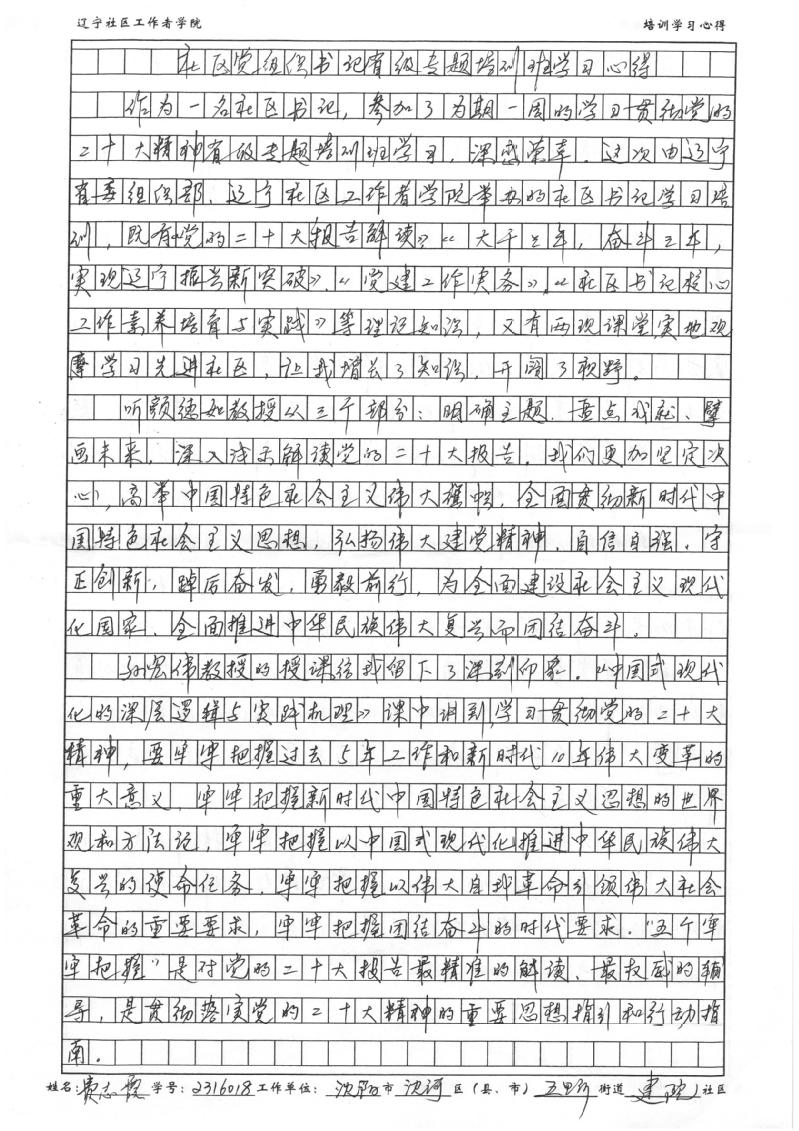 辽宁社区工作者学院 培训学习心得
社区党组织书记省级专题培训班学习心得
作为一名社区书记，参加了为期一周的学习贯彻党的
二十大精神省级专题培训班学习，深感荣幸。这次由辽宁
省委组织部、辽宁社区工作者学院举办的社区书记学习培
训，既有《党的二十大报告解读》《大干三年，奋斗三年，
实现辽宁振兴新突破》、《党建工作实务》、《社区书记核心
工作素养培育与实践》等理论知识，又有两现课堂，实地观
摩学习先进社区，让我增长了知识，开阔了视野。
听颜德如教授从三个部分：明确主题、盘点成就、擘
画未来，深入浅出解读党的二十大报告。我们更加坚定决
心，高举中国特色社会主义伟大旗帜，全面贯彻新时代中
国特色社会主义思想，弘扬伟大建党精神，自信自强、守
正创新，踔厉奋发、勇毅前行，为全面建设社会主义现代
化国家、全面推进中华民族伟大复兴而团结奋斗。
孙宏伟教授的授课给我留下了深刻印象。《中国式现代
化的深层逻辑与实践机理》课中讲到，学习贯彻党的二十大
精神，要牢牢把握过去5年工作和新时代10年伟大变革的
重大意义，牢牢把握新时代中国特色社会主义思想的世界
观和方法论，牢牢把握以中国式现代化推进中华民族伟大
复兴的使命任务，牢牢把握以伟大自我革命引领伟大社会
革命的重要要求，牢牢把握团结奋斗的时代要求。“五个牢
牢把握”是对党的二十大报告最精准的解读、最权威的辅
导，是贯彻落实党的二十大精神的重要思想指引和行动指
南。
姓名：黄志霞 学号：2316018 工作单位：沈阳市 沈河 区（县、市） 五里河 街道 建院 社区